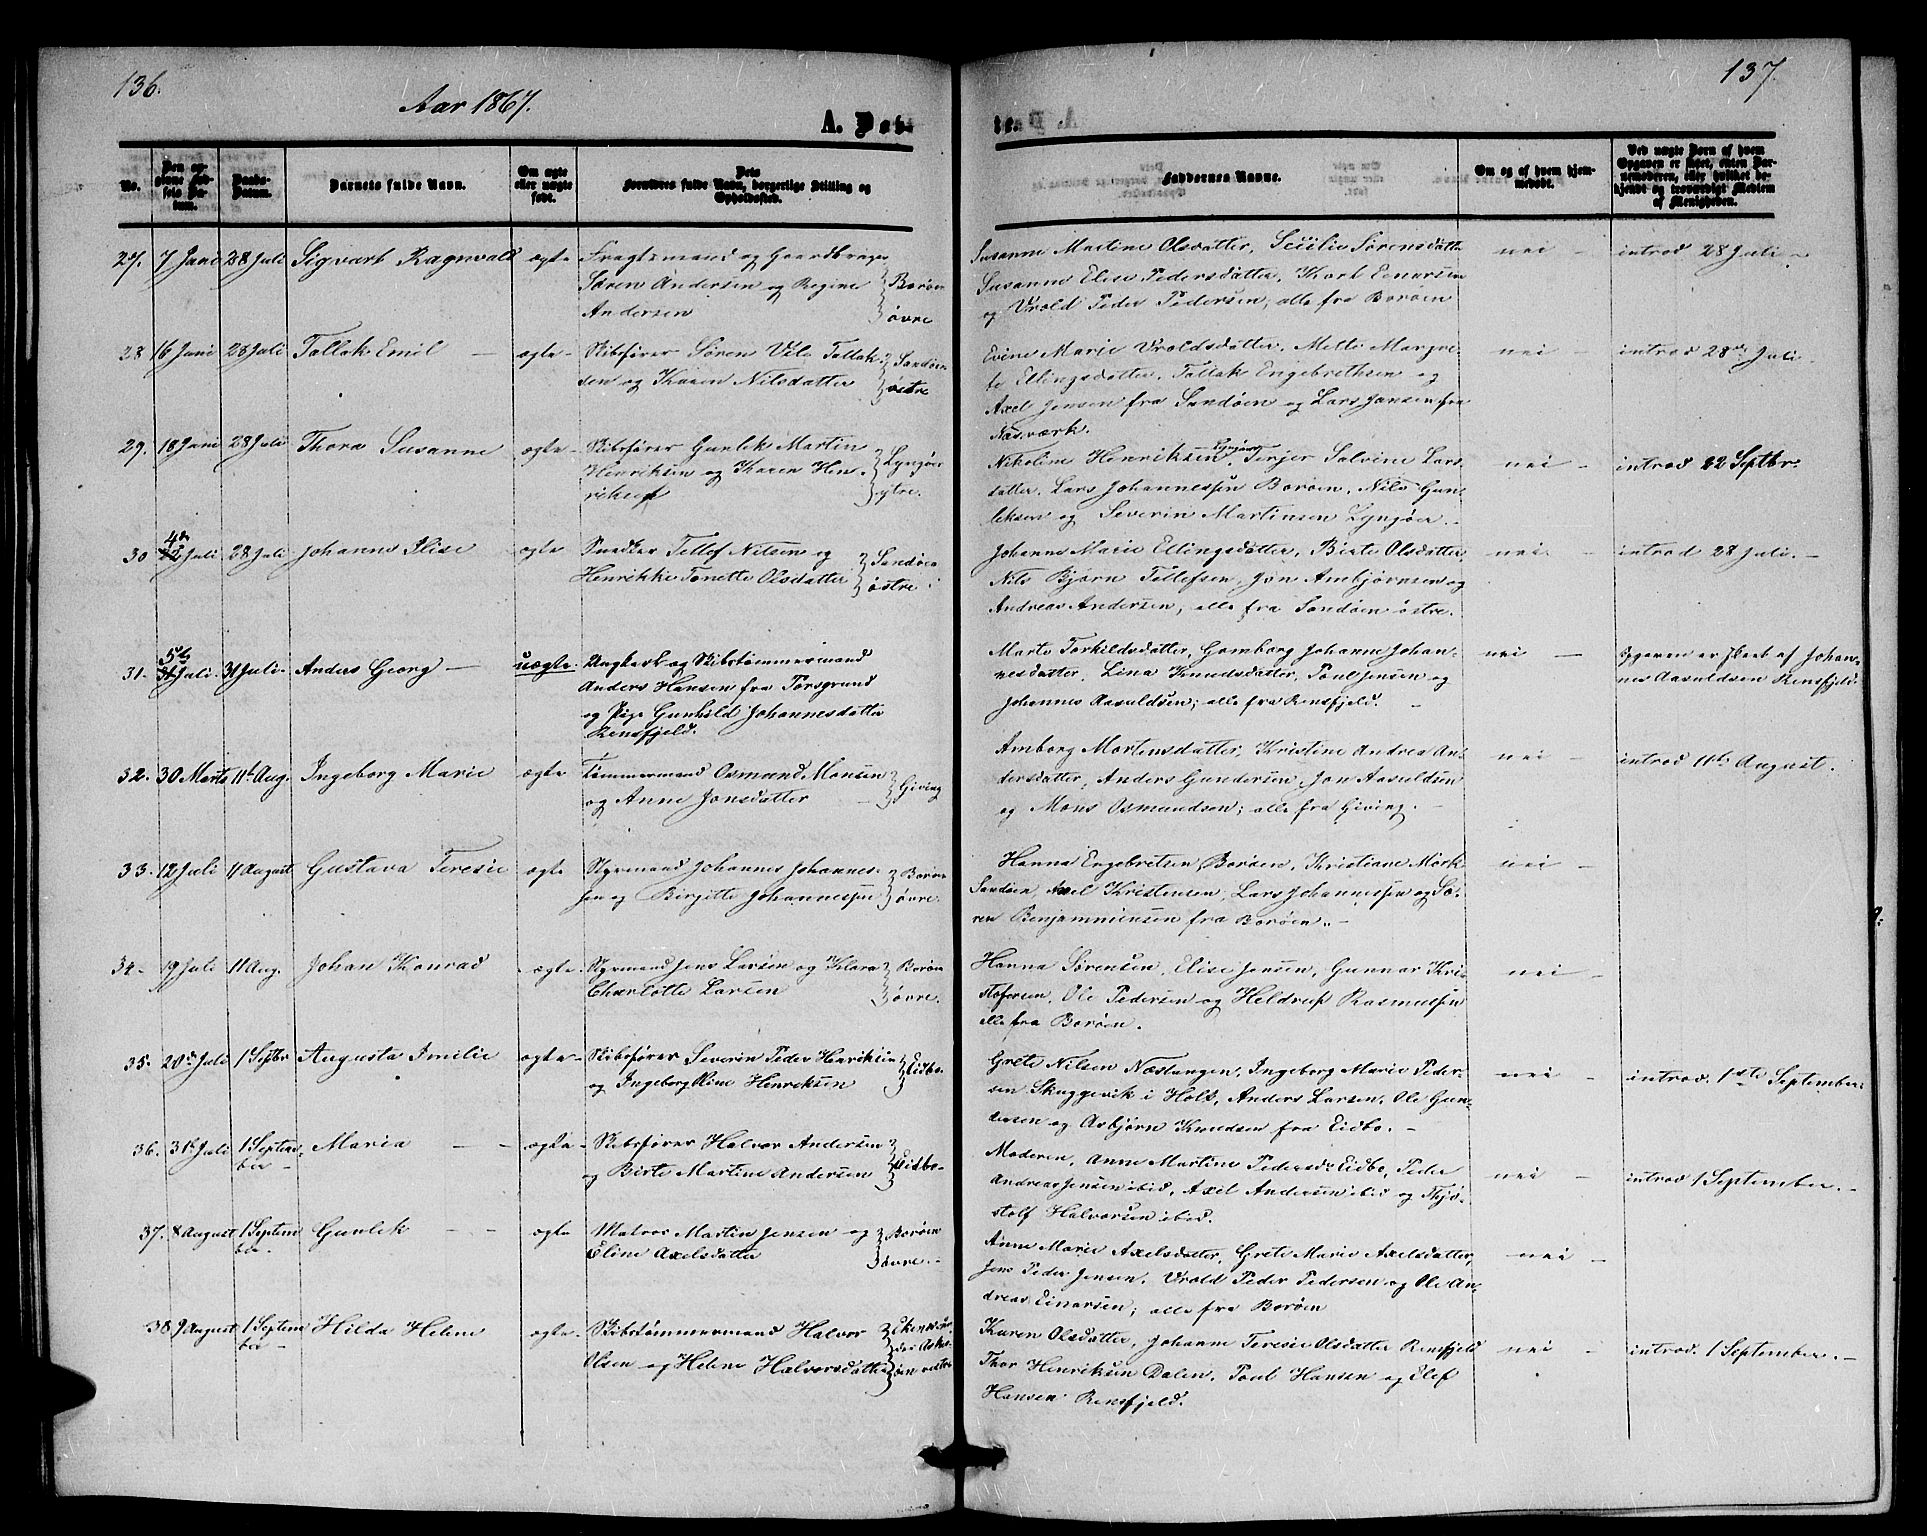 136.
Aar 1867.
A. Døb-
No.
Den angivne Fødsels Datum.
Daabs-Datum.
Barnets fulde Navn.
Om ægte eller uægte født.
Dets Forældres fulde Navn, borgerlige Stilling og Opholdssted.
27. 7 Juni 28 Juli Sigvart Ragnvald ægte Fragtemand og Gaardbruger
Søren Andersen og Regine } Borøen
Andersen } øvre
28 16 Juni 28 Juli Tallak Emil — ægte - Skibsfører Søren Vilo Tallak-
sen og Karen Nilsdatter } Sandøen østre
29. 18 Juni 28 Juli Thora Susanne ægte - Skibsfører Gunlek Martin
Henriksen og Karen Hen- } Lyngøer
riksen } ytre.
30 4de Juli 28 Juli Johanne Elise ægte Snedker Tellef Nilsen og } Sandøen
Henrikke Tonette Olsdatter } østre
31. 5te Juli. 31 Juli - Anders Georg — uægte. Ungkarl og Skibstømmermand
Anders Hansen fra Porsgrund
og Pige Gunhild Johannesdatter
Rensfjeld.
32. 30 Marts 11te Aug. Ingeborg Marie ægte Tømmermand Osmund Monsen
og Anne Jonsdatter — } Giving
33. 12 Juli 11 August Gustava Teresie ægte Styrmand Johannes Johannes- } Borøen
sen og Birgitte Johannessen } øvre.
34 - 19 Juli 11 Aug. Johan Konrad - ægte. Styrmand Jens Larsen og Klara } Borøen
Charlotte Larsen } øvre.
35. 20de Juli 1 Septbr Augusta Emilie ægte - Skibsfører Severin Peder Henriksen
og Ingeborg Eline Henriksen } Eidbo.
36. 31te Juli 1 Septem- Maria — - ægte. Skibsfører Halvor Andersen
ber - og Birte Martine Andersen } Eidbo.
37. 8 August 1 Septem Gunlek - - ægte Matros Martin Jensen og } Borøen
ber. Eline Axelsdatter } øvre. -
38 9 August 1 Septem Hilda Helene ægte. Skibstømmermand Halvor
ber - Olsen og Helene Halvorsdatter
137.
te.
Faddernes Navne.
Om og af hvem hjemmedøbt.
Ved uægte Børn af hvem Opgaven er skeet, enten Barnemoderen, eller hvilket bekjendt og troværdigt Medlem af Menigheden.
Susanne Martine Olsdatter, Secilie Sørensdatter nei - introd 28 Juli -
Susanne Elise Pedersdatter, Kort Einarsen
og Vrold Peder Pedersen, alle fra Borøen
Evine Marie Vroldsdatter, Mette Margre- nei - introd 28de Juli.
te Ellingsdatter, Tallak Engebrethsen og
Axel Jensen fra Sandøen og Lars Jansen fra
Næsværk.
Nikoline Henriksen Lyngøer, Terjer Salvine Lars- nei - introd 22 Septbr.
datter, Lars Johannessen Borøen, Nils Gun-
leksen og Severin Martinsen Lyngøer. -
Johanne Marie Ellingsdatter, Birte Olsdatter, nei - introd 28 Juli. -
Nils Bjørn Tellefsen, Jon Ambjørnsen og
Andreas Andersen, alle fra Sandøen østre.
Marte Torkildsdatter, Gomborg Johanne Johan- nei — Opgaven er skeet af Johan-
nesdatter, Lina Knudsdatter, Poul Jensen og nes Aasuldsen Rensfjeld.
Johannes Aasuldsen; alle fra Rensfjeld. -
Amborg Mortensdatter, Kristine Andrea An- nei - introd 11te August.
dersdatter, Anders Gundersen, Jon Aasuldsen
og Mons Osmundsen; alle fra Giving. -
Hanna Engebretsen, Borøen, Kristiane Mørk nei -
Sandøen Axel Kristensen, Lars Johannessen og Sø-
ren Benjaminsen fra Borøen. -
Hanna Sørensen, Elise Jensen, Gunnar Kri- nei -
stofersen, Ole Pedersen og Heldrup Rasmussen
alle fra Borøen.
Grete Nilsen Næstangen, Ingeborg Marie Peder- nei - introd. 1ste September.
sen Skuggevik i Holt, Anders Larsen, Ole Gun-
dersen og Asbjørn Knudsen fra Eidbo. -
Moderen, Anne Martine Pedersdr Eidbo, Peder nei - introd 1 September. -
Andreas Jensen ibid, Axel Andersen ibid og Thjø-
stolf Halvorsen ibid.
Anne Marie Axelsdatter, Grete Marie Axelsdatter, nei -
Jens Peder Jensen, Vrold Peder Pedersen og Ole An-
dreas Einarsen; alle fra Borøen
Karen Olsdatter, Johanne Teresie Olsdatter Rensfjeld nei - introd. 1 September. -
Thor Henriksen Dalen, Poul Hansen og Elef
Hansen Rensfjeld.